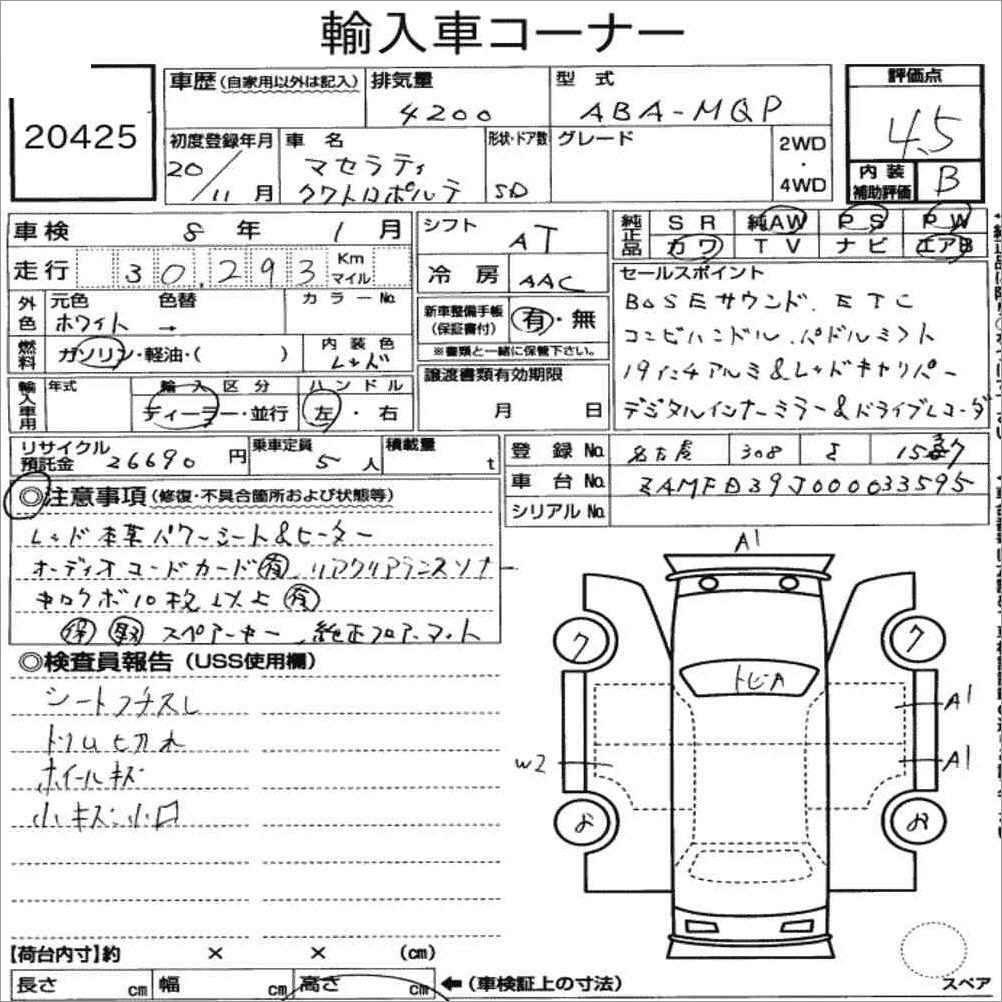 輸入車コーナー
20425
車歴 (自家用以外は記入)
排気量
4200
型式
ABA-MQP
評価点
4.5
初度登録年月
20/11月
車名
マセラティ
クワトロポルテ
形状・ドア数
5D
グレード
2WD
・
4WD
内装
補助評価
B
車検 8年 1月
走行 30,293 Km マイル
シフト
AT
冷房 AAC
純正品
SR 純AW PS PW
カワ TV ナビ エアB
外色
元色
ホワイト
色替
→
カラーNo.
新車整備手帳
(保証書付)
有・無
※書類と一緒に保管下さい。
燃料
ガソリン・軽油・( )
内装色
レッド
セールスポイント
BOSEサウンド. ETC
コンビハンドル. パドルシフト
19インチアルミ&レッドキャリパー
デジタルインナーミラー&ドライブレコーダ
輸入車用
年式
輸入区分
ディーラー・並行
ハンドル
左・右
譲渡書類有効期限
月 日
リサイクル
預託金 26690円
乗車定員
5人
積載量
t
登録No. 名古屋 308
車台No. ZAMFD39J000033595
シリアルNo.
◎注意事項 (修復・不具合箇所および状態等)
レッド本革パワーシート&ヒーター
オーディオコードカード有. リアクリアランスソナー
キロクボ10枚以上有
保 取 スペアーキー. 純正フロアーマット
◎検査員報告 (USS使用欄)
シートフチスレ
トリムヒ切れ
ホイールキズ
小キズ.小凹
A1
ク
ク
トビA
A1
W2
A1
よ
【荷台内寸】約 × × (cm)
長さ cm 幅 cm 高さ cm ←(車検証上の寸法)
スペア